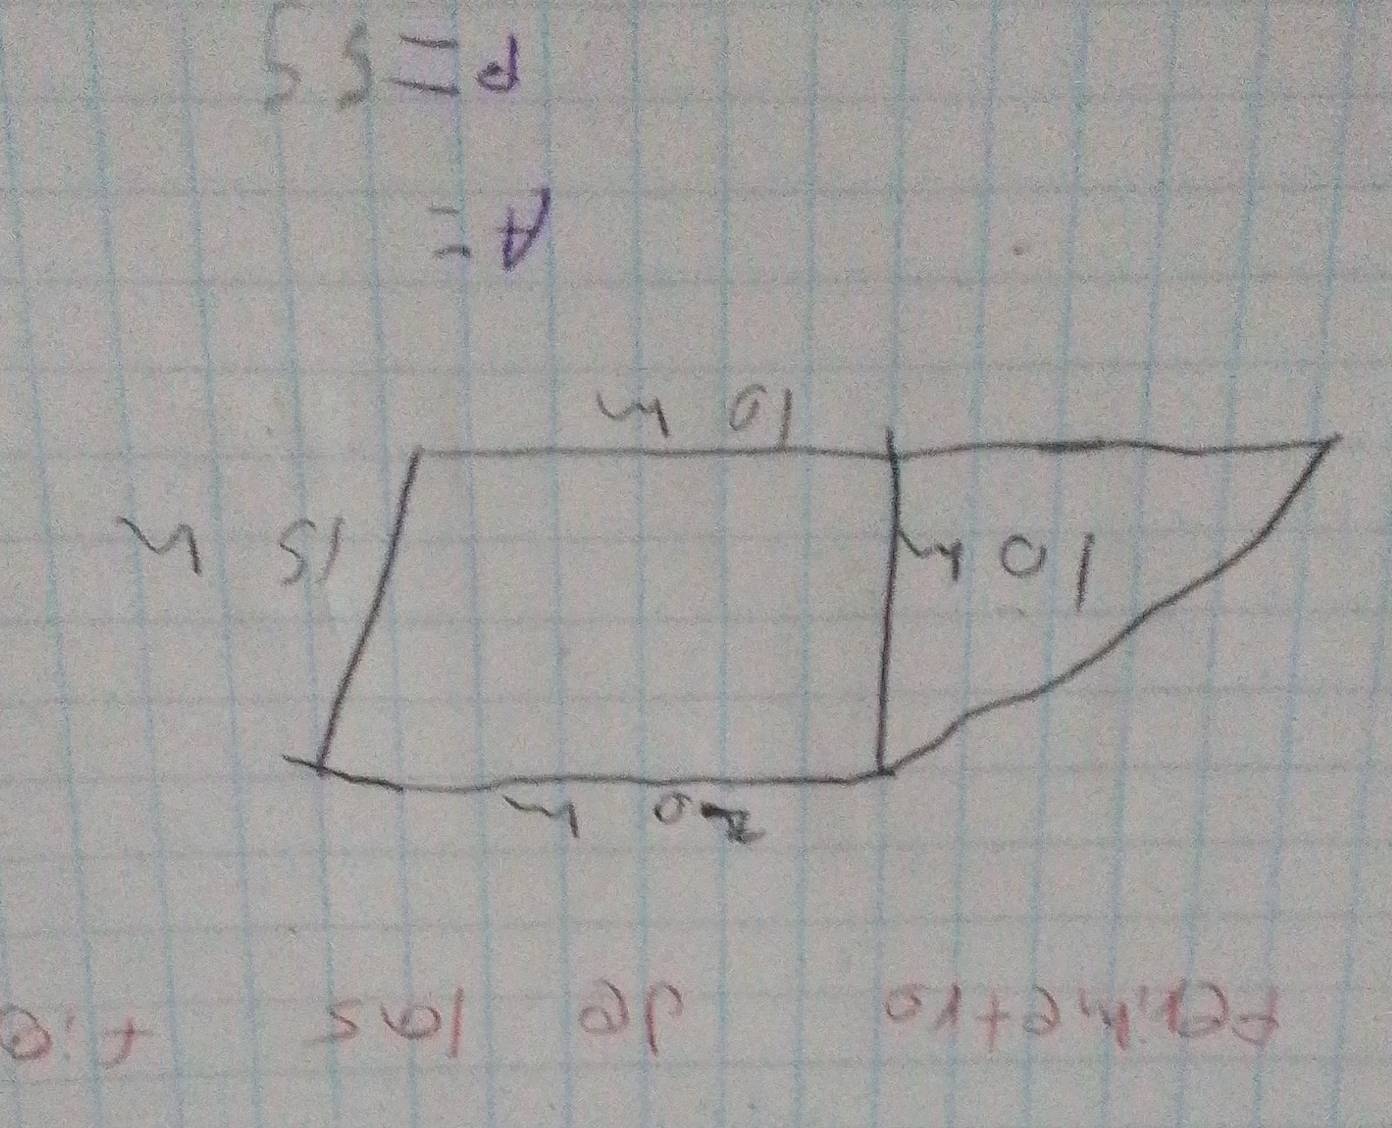 Perimetro de las tie
20 m
10 m 15 m
10 m
A =
P=55